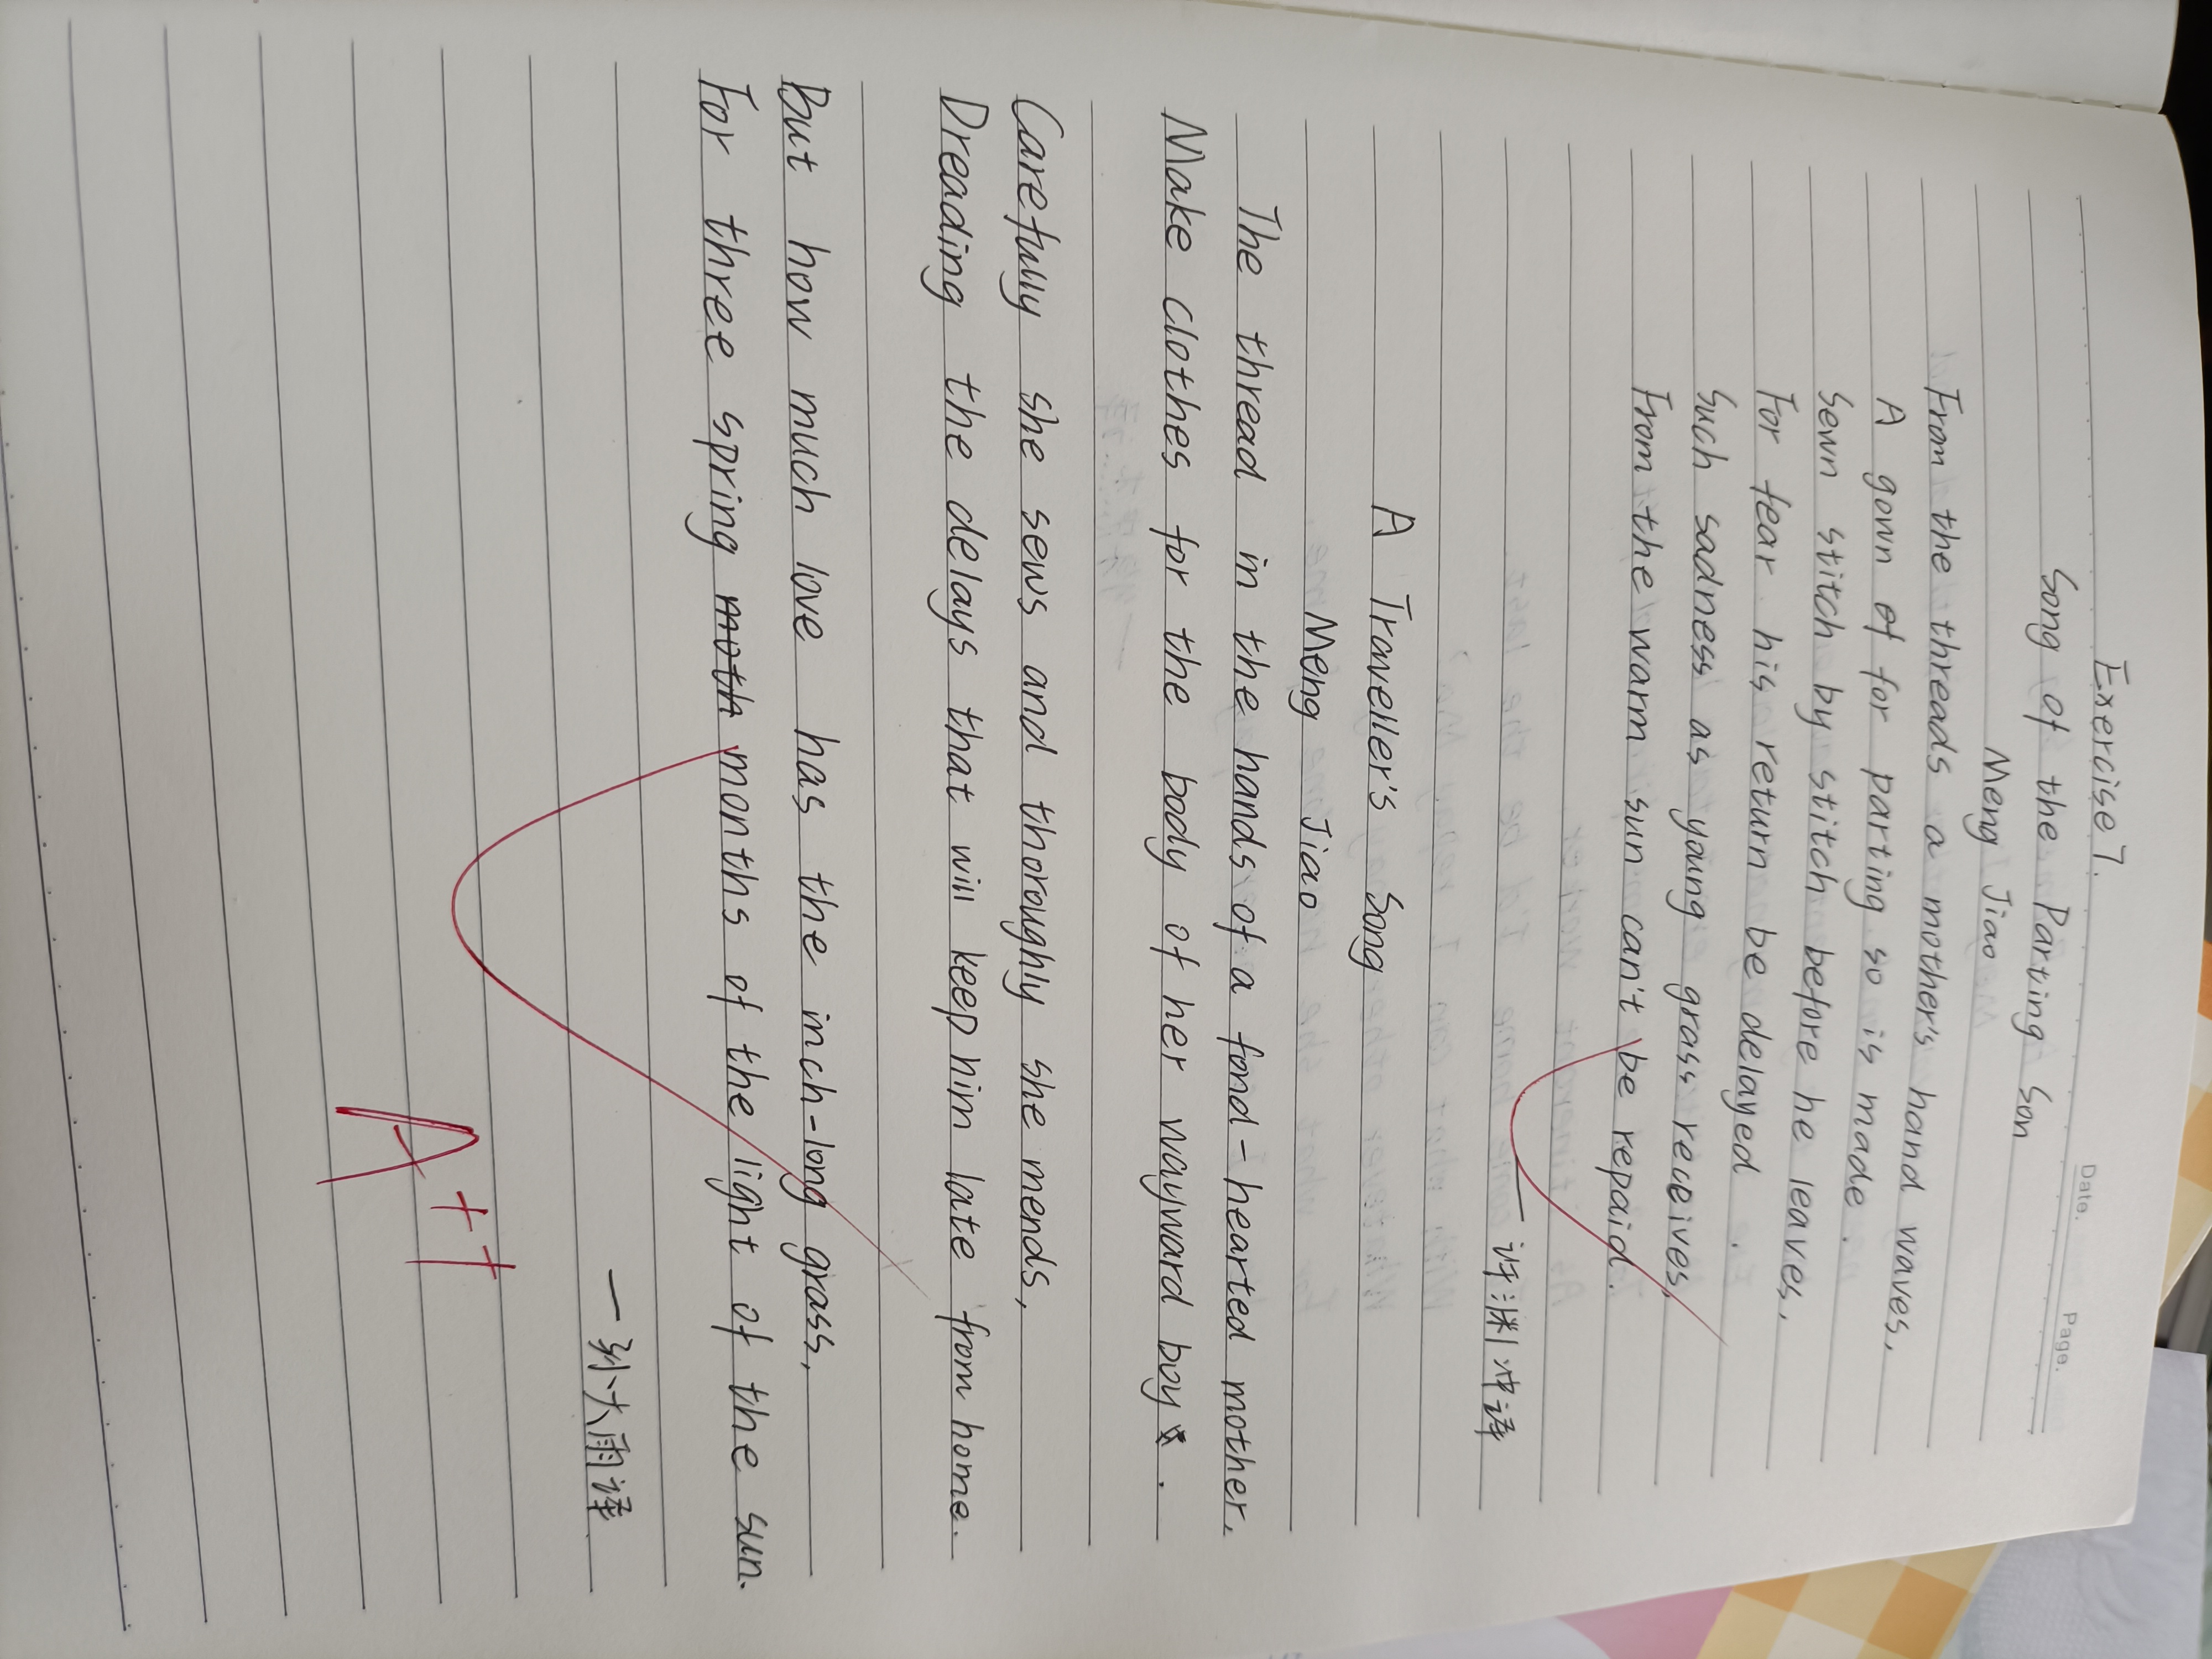 Date. Page.
Exercise 7.
Song of the Parting Son
Meng Jiao
From the threads a mother's hand waves,
A gown of for parting so is made.
Sewn stitch by stitch before he leaves,
For fear his return be delayed.
Such sadness as young grass receives
From the warm sun can't be repaid.
—许渊冲译
A Traveller's Song
Meng Jiao
The thread in the hands of a fond-hearted mother.
Make clothes for the body of her wayward boy.
Carefully she sews and thoroughly she mends,
Dreading the delays that will keep him late from home.
But how much love has the inch-long grass,
For three spring moth months of the light of the sun.
—孙大雨译
A++